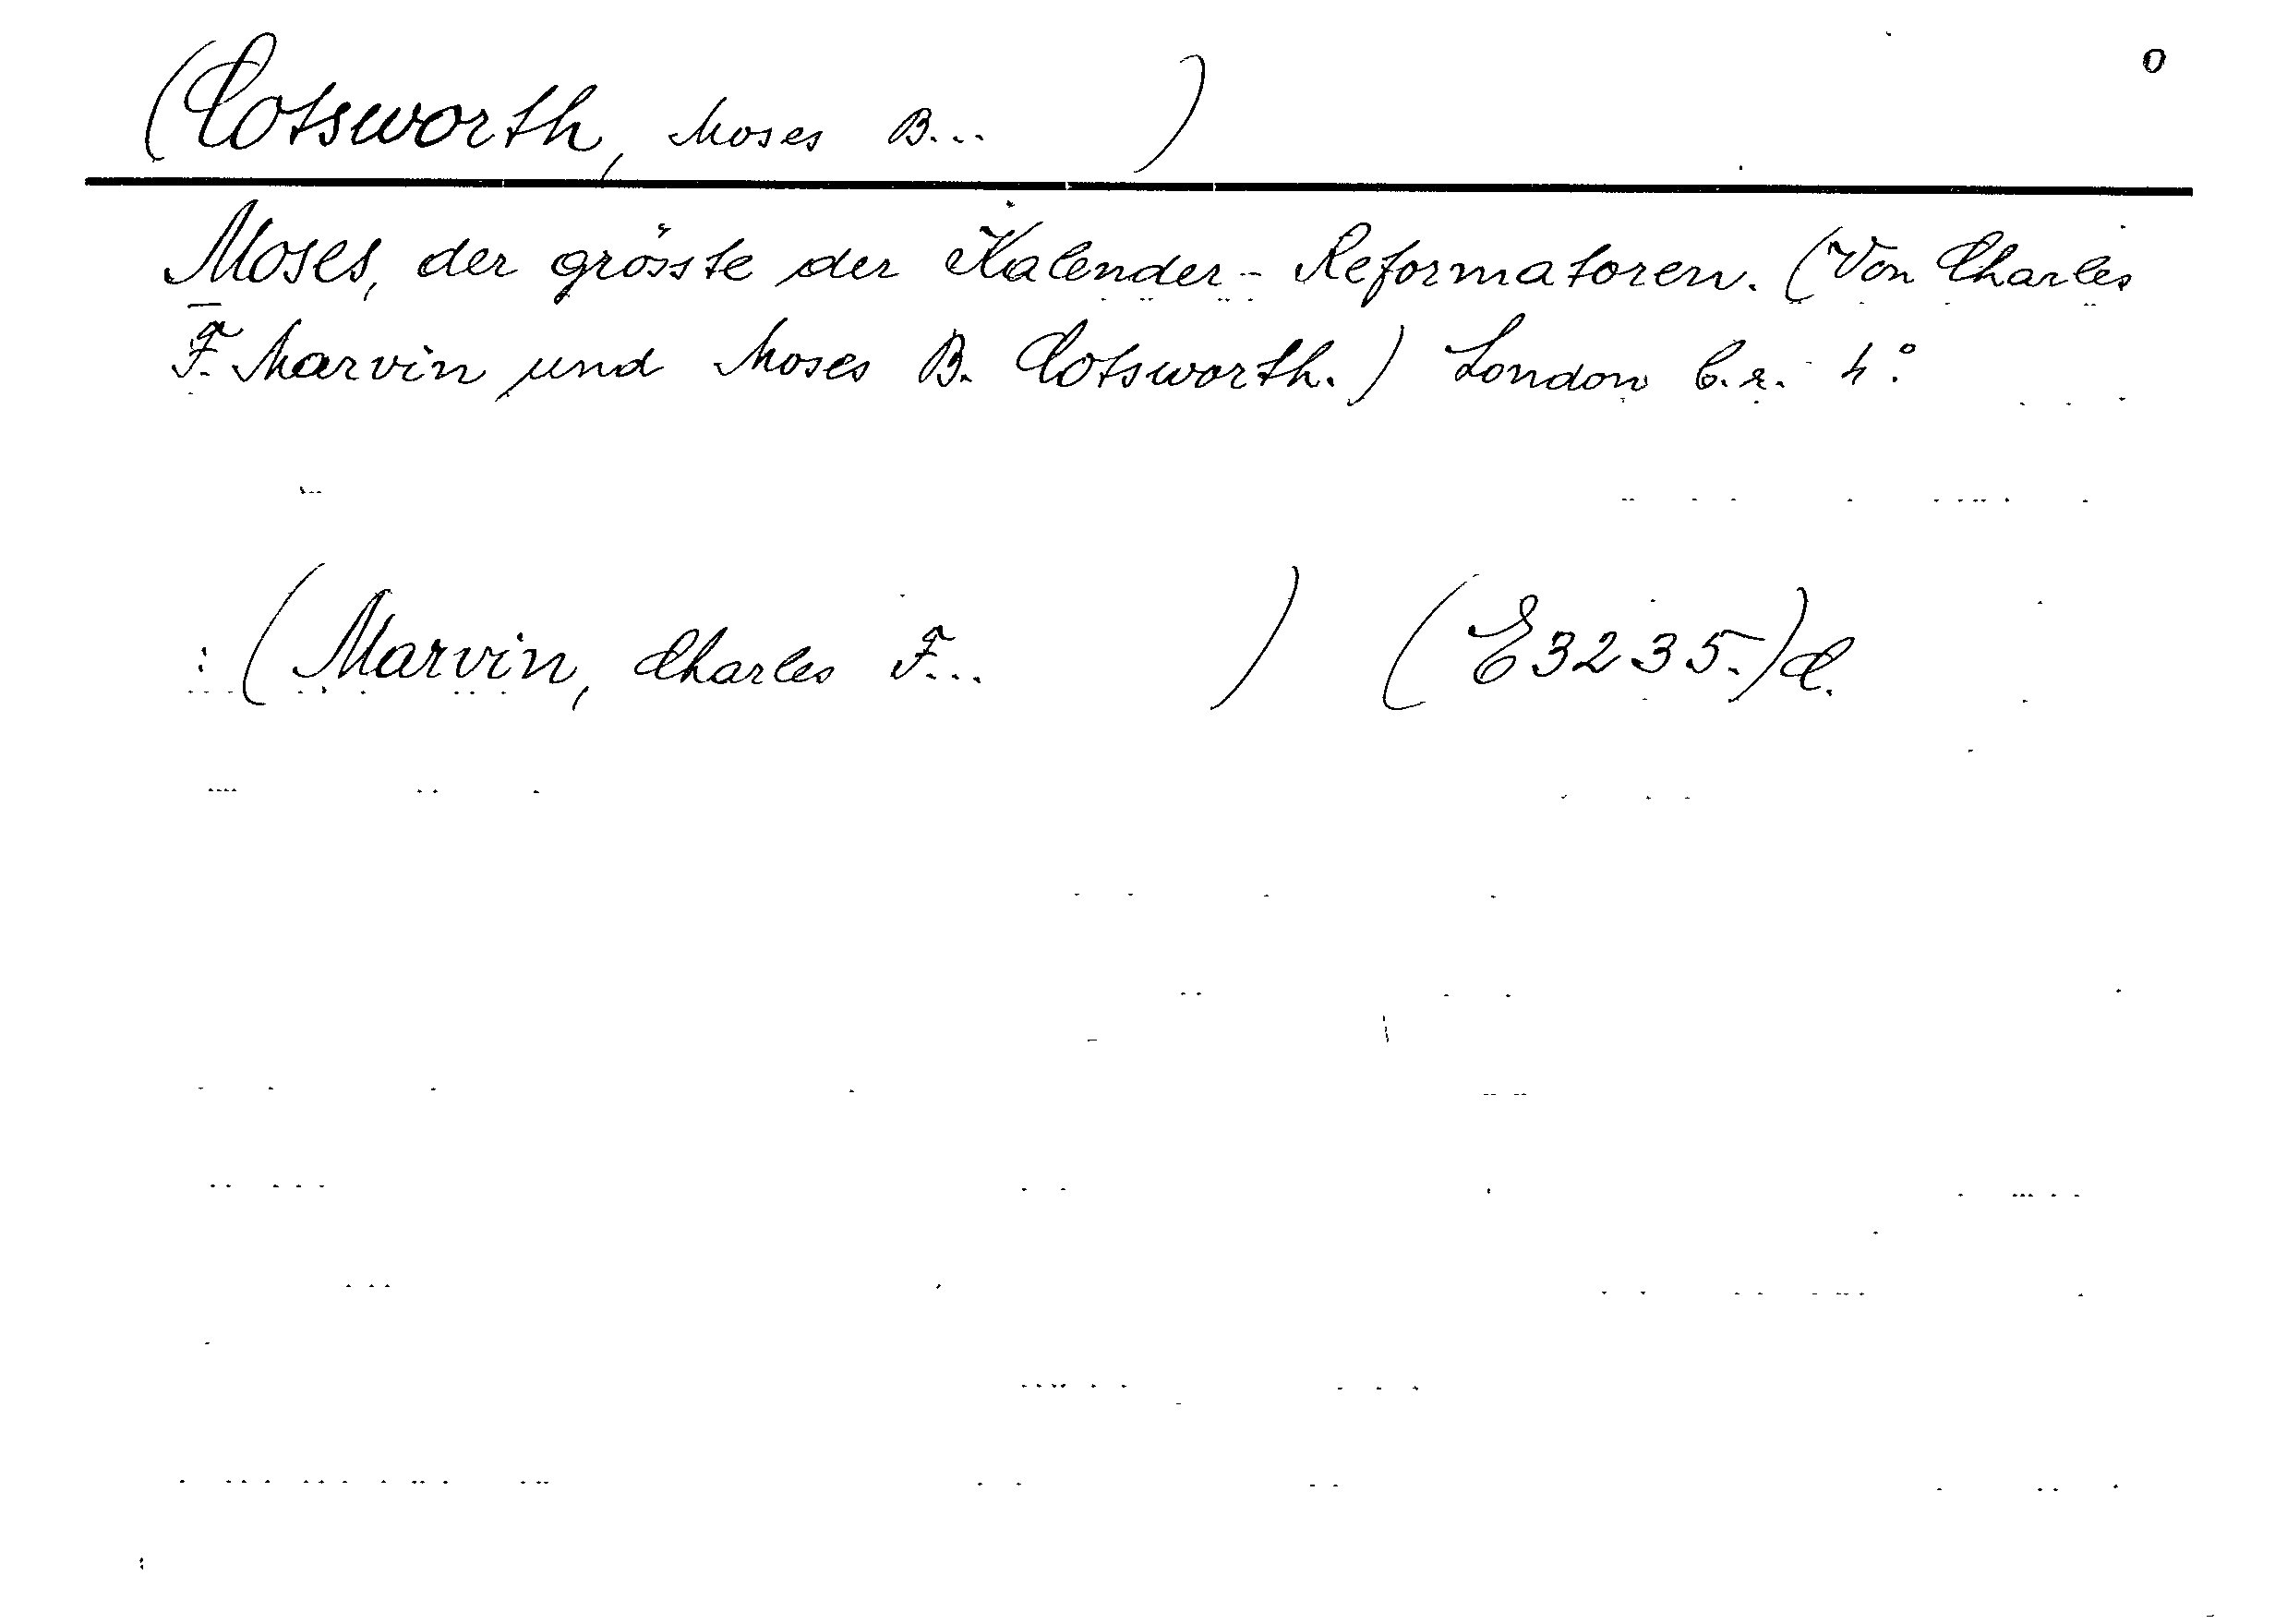 0
(Cotsworth, Moses B... )
Moses, der grösste der Kalender-Reformatoren. (Von Charles
F. Marvin und Moses B. Cotsworth.) London b.r. 4°.
: (Marvin, Charles F... ) (E3235.)d.